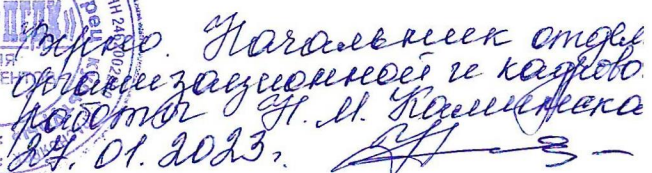 Верно. Начальник отдел
организационной и кадрово
работы Н. М. Калинска
27. 01. 2023г.